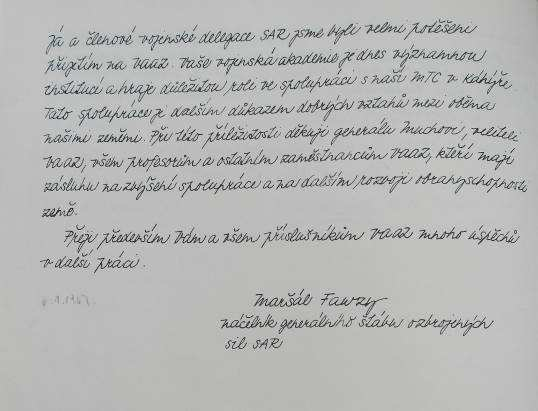 Já a členové vojenské delegace SAR jsme byli velmi potěšeni
přijetím na VAAZ. Vaše vojenská akademie je dnes významnou
institucí a hraje důležitou roli ve spolupráci s naší MTC v Káhýře.
Tato spolupráce je dalším důkazem dobrých vztahů mezi oběma
našimi zeměmi. Při této příležitosti děkuji generálu Muchovi, veliteli
VAAZ, všem profesorům a ostatním zaměstnancům VAAZ, kteří mají
zásluhu na zvýšení spolupráce a na dalším rozvoji obranyschopnosti
země.
Přeji především Vám a všem příslušníkům VAAZ mnoho úspěchů
v další práci.
Maršál Fawzy
náčelník generálního štábu ozbrojených
sil SAR